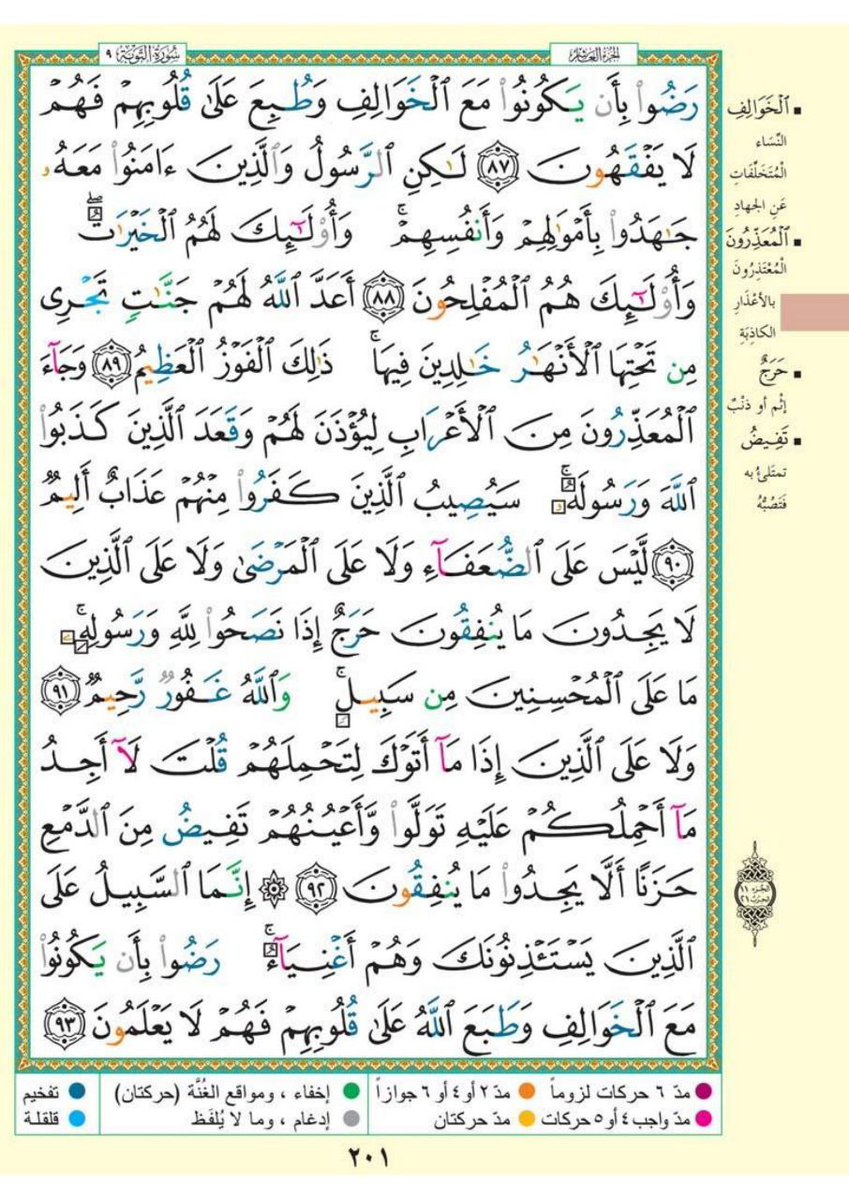 سُورَةُ التَّوْبَة ٩
الجُزءُ العَاشِر
رَضُوا۟ بِأَن يَكُونُوا۟ مَعَ ٱلْخَوَالِفِ وَطُبِعَ عَلَىٰ قُلُوبِهِمْ فَهُمْ
لَا يَفْقَهُونَ ٨٧ لَـٰكِنِ ٱلرَّسُولُ وَٱلَّذِينَ ءَامَنُوا۟ مَعَهُۥ
جَـٰهَدُوا۟ بِأَمْوَٰلِهِمْ وَأَنفُسِهِمْ ۚ وَأُو۟لَـٰٓئِكَ لَهُمُ ٱلْخَيْرَٰتُ ۖ
وَأُو۟لَـٰٓئِكَ هُمُ ٱلْمُفْلِحُونَ ٨٨ أَعَدَّ ٱللَّهُ لَهُمْ جَنَّـٰتٍ تَجْرِى
مِن تَحْتِهَا ٱلْأَنْهَـٰرُ خَـٰلِدِينَ فِيهَا ۚ ذَٰلِكَ ٱلْفَوْزُ ٱلْعَظِيمُ ٨٩ وَجَآءَ
ٱلْمُعَذِّرُونَ مِنَ ٱلْأَعْرَابِ لِيُؤْذَنَ لَهُمْ وَقَعَدَ ٱلَّذِينَ كَذَبُوا۟
ٱللَّهَ وَرَسُولَهُۥ ۚ سَيُصِيبُ ٱلَّذِينَ كَفَرُوا۟ مِنْهُمْ عَذَابٌ أَلِيمٌ
٩٠ لَّيْسَ عَلَى ٱلضُّعَفَآءِ وَلَا عَلَى ٱلْمَرْضَىٰ وَلَا عَلَى ٱلَّذِينَ
لَا يَجِدُونَ مَا يُنفِقُونَ حَرَجٌ إِذَا نَصَحُوا۟ لِلَّهِ وَرَسُولِهِۦ ۚ
مَا عَلَى ٱلْمُحْسِنِينَ مِن سَبِيلٍ ۚ وَٱللَّهُ غَفُورٌ رَّحِيمٌ ٩١
وَلَا عَلَى ٱلَّذِينَ إِذَا مَآ أَتَوْكَ لِتَحْمِلَهُمْ قُلْتَ لَآ أَجِدُ
مَآ أَحْمِلُكُمْ عَلَيْهِ تَوَلَّوا۟ وَّأَعْيُنُهُمْ تَفِيضُ مِنَ ٱلدَّمْعِ
حَزَنًا أَلَّا يَجِدُوا۟ مَا يُنفِقُونَ ٩٢ ۞ إِنَّمَا ٱلسَّبِيلُ عَلَى
ٱلَّذِينَ يَسْتَـْٔذِنُونَكَ وَهُمْ أَغْنِيَآءُ ۚ رَضُوا۟ بِأَن يَكُونُوا۟
مَعَ ٱلْخَوَالِفِ وَطَبَعَ ٱللَّهُ عَلَىٰ قُلُوبِهِمْ فَهُمْ لَا يَعْلَمُونَ ٩٣
ٱلْخَوَالِفِ
النِّسَاءِ
الْمُتَخَلِّفَاتِ
عَنِ الجِهادِ
ٱلْمُعَذِّرُونَ
الْمُعْتَذِرُونَ
بالأعْذَارِ
الكاذِبَةِ
حَرَجٌ
إثْم أو ذنْبٌ
تَفِيضُ
تمتَلئُ به
فَتَصُبُّهُ
الجزء ١١
الحزب ٢١
مدّ ٦ حركات لزوماً
مدّ ٢ أو ٤ أو ٦ جوازاً
إخفاء ، ومواقع الغُنَّة (حركتان)
تفخيم
مدّ واجب ٤ أو ٥ حركات
مدّ حركتان
إدغام ، وما لا يُلفَظ
قلقلة
٢٠١